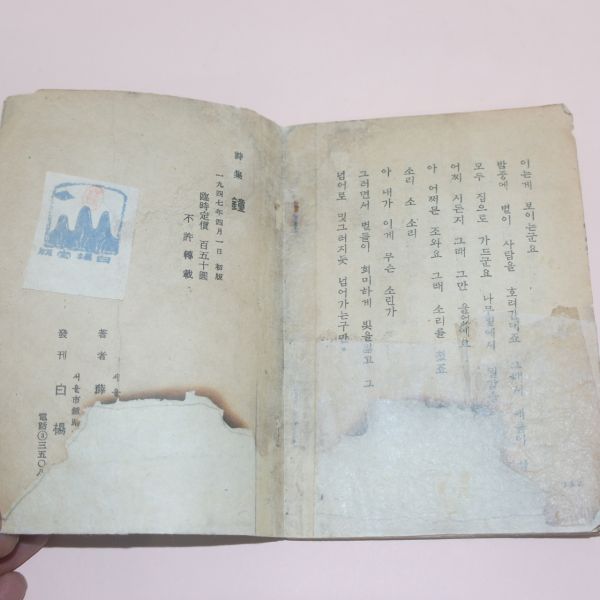 이는게 보이는군요
밤중에 별이 사람을 호리기
모두 집으로 가드군요
어찌 서든지 그때 그만 울었에요
아 어쩌문 조와요 그때 소리를
소리 소 소리
아 내가 이게 무슨 소린가
그러면서 별들이 희미하게 빛을 잃고 그
넘어로 밋그러지듯 넘어가는구만
詩集 鐘
一九四七年四月一日 初版
臨時定價 百五十圜
不許轉載
著者 薛
서울
서울市鍾路
發刊 白楊
電話③三五〇
白楊堂版